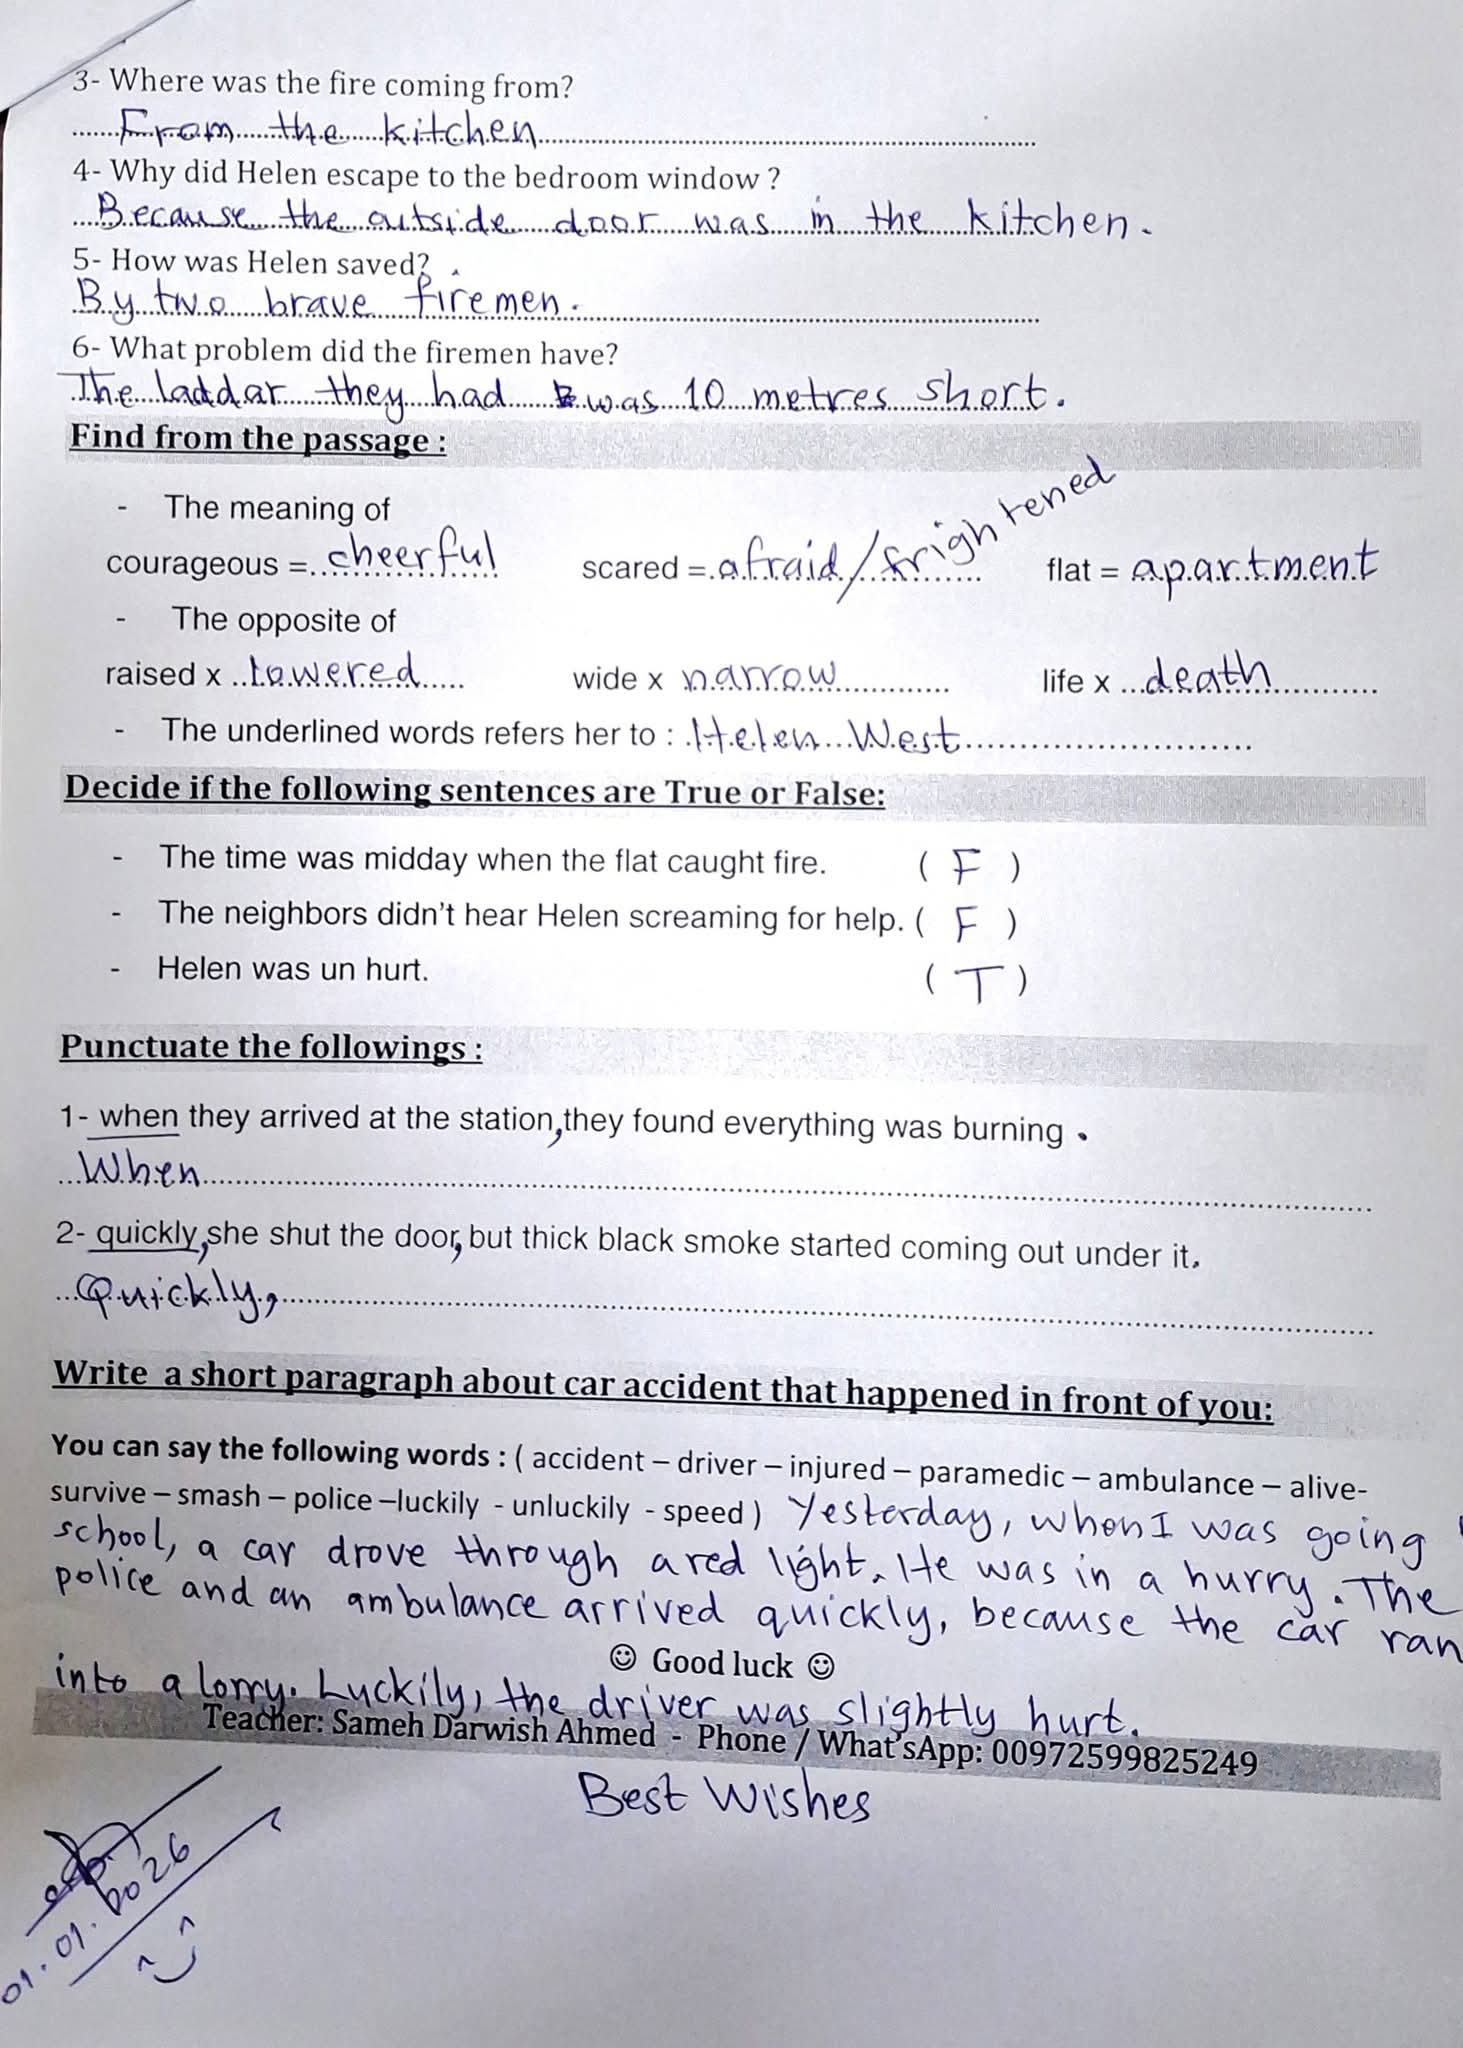 3- Where was the fire coming from?
From the kitchen
4- Why did Helen escape to the bedroom window ?
Because the outside door was in the kitchen.
5- How was Helen saved?
By two brave firemen.
6- What problem did the firemen have?
The laddar they had was 10 metres short.
Find from the passage :
- The meaning of
courageous = cheerful scared = afraid/frightened flat = apartment
- The opposite of
raised x lowered wide x narrow life x death
- The underlined words refers her to : Helen West
Decide if the following sentences are True or False:
- The time was midday when the flat caught fire. ( F )
- The neighbors didn't hear Helen screaming for help. ( F )
- Helen was un hurt. ( T )
Punctuate the followings :
1- when they arrived at the station, they found everything was burning .
When
2- quickly, she shut the door, but thick black smoke started coming out under it.
Quickly,
Write a short paragraph about car accident that happened in front of you:
You can say the following words : ( accident – driver – injured – paramedic – ambulance – alive-
survive – smash – police –luckily - unluckily - speed ) Yesterday, when I was going
school, a car drove through a red light. He was in a hurry. The
police and an ambulance arrived quickly, because the car ran
☺ Good luck ☺
into a lorry. Luckily, the driver was slightly hurt.
Teacher: Sameh Darwish Ahmed - Phone / What'sApp: 00972599825249
Best Wishes
01.01.2026